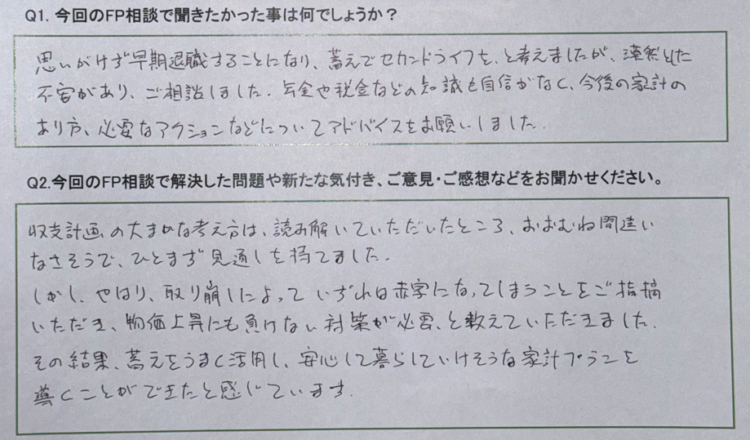 Q1. 今回のFP相談で聞きたかった事は何でしょうか？
思いがけず早期退職することになり、蓄えでセカンドライフを、と考えましたが、漠然とした
不安があり、ご相談しました。年金や税金などの知識も自信がなく、今後の家計の
あり方、必要なアクションなどについてアドバイスをお願いしました。
Q2.今回のFP相談で解決した問題や新たな気付き、ご意見・ご感想などをお聞かせください。
収支計画の大まかな考え方は、読み解いていただいたところ、おおむね間違い
なさそうで、ひとまず見通しを持てました。
しかし、やはり、取り崩しによって いずれは赤字になってしまうことをご指摘
いただき、物価上昇にも負けない対策が必要、と教えていただきました。
その結果、蓄えをうまく活用し、安心して暮らしていけそうな家計プランを
導くことができたと感じています。